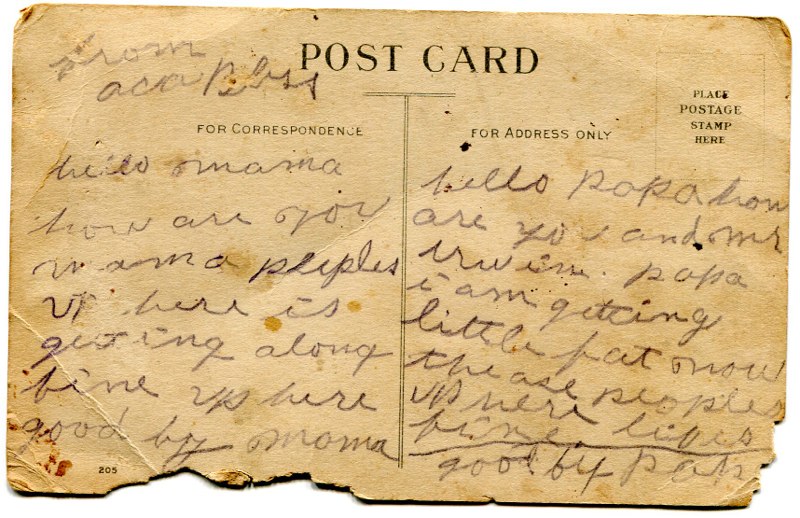 From
POST CARD
PLACE
POSTAGE
STAMP
HERE
FOR CORRESPONDENCE
hello mama
how are you
mama peoples
up here is
getting along
fine up here
good by mama
205
FOR ADDRESS ONLY
hello papa how
are you and mr
irwin. papa
i am getting
little fat now
the ase peoples
up here lifes
fine.
good by